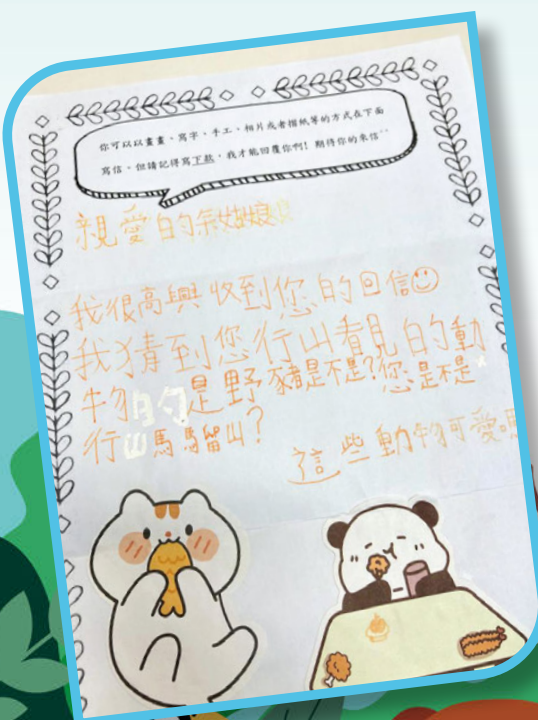 你可以以畫畫、寫字、手工、相片或者摺紙等的方式在下面
寫信。但請記得寫下款，我才能回覆你啊! 期待你的來信^^
親愛的氣姑娘
我很高興收到您的回信
我猜到您行山看見的動
物的是野豬是不是?您是不是
行山馬騮山?
這些動物可愛嗎